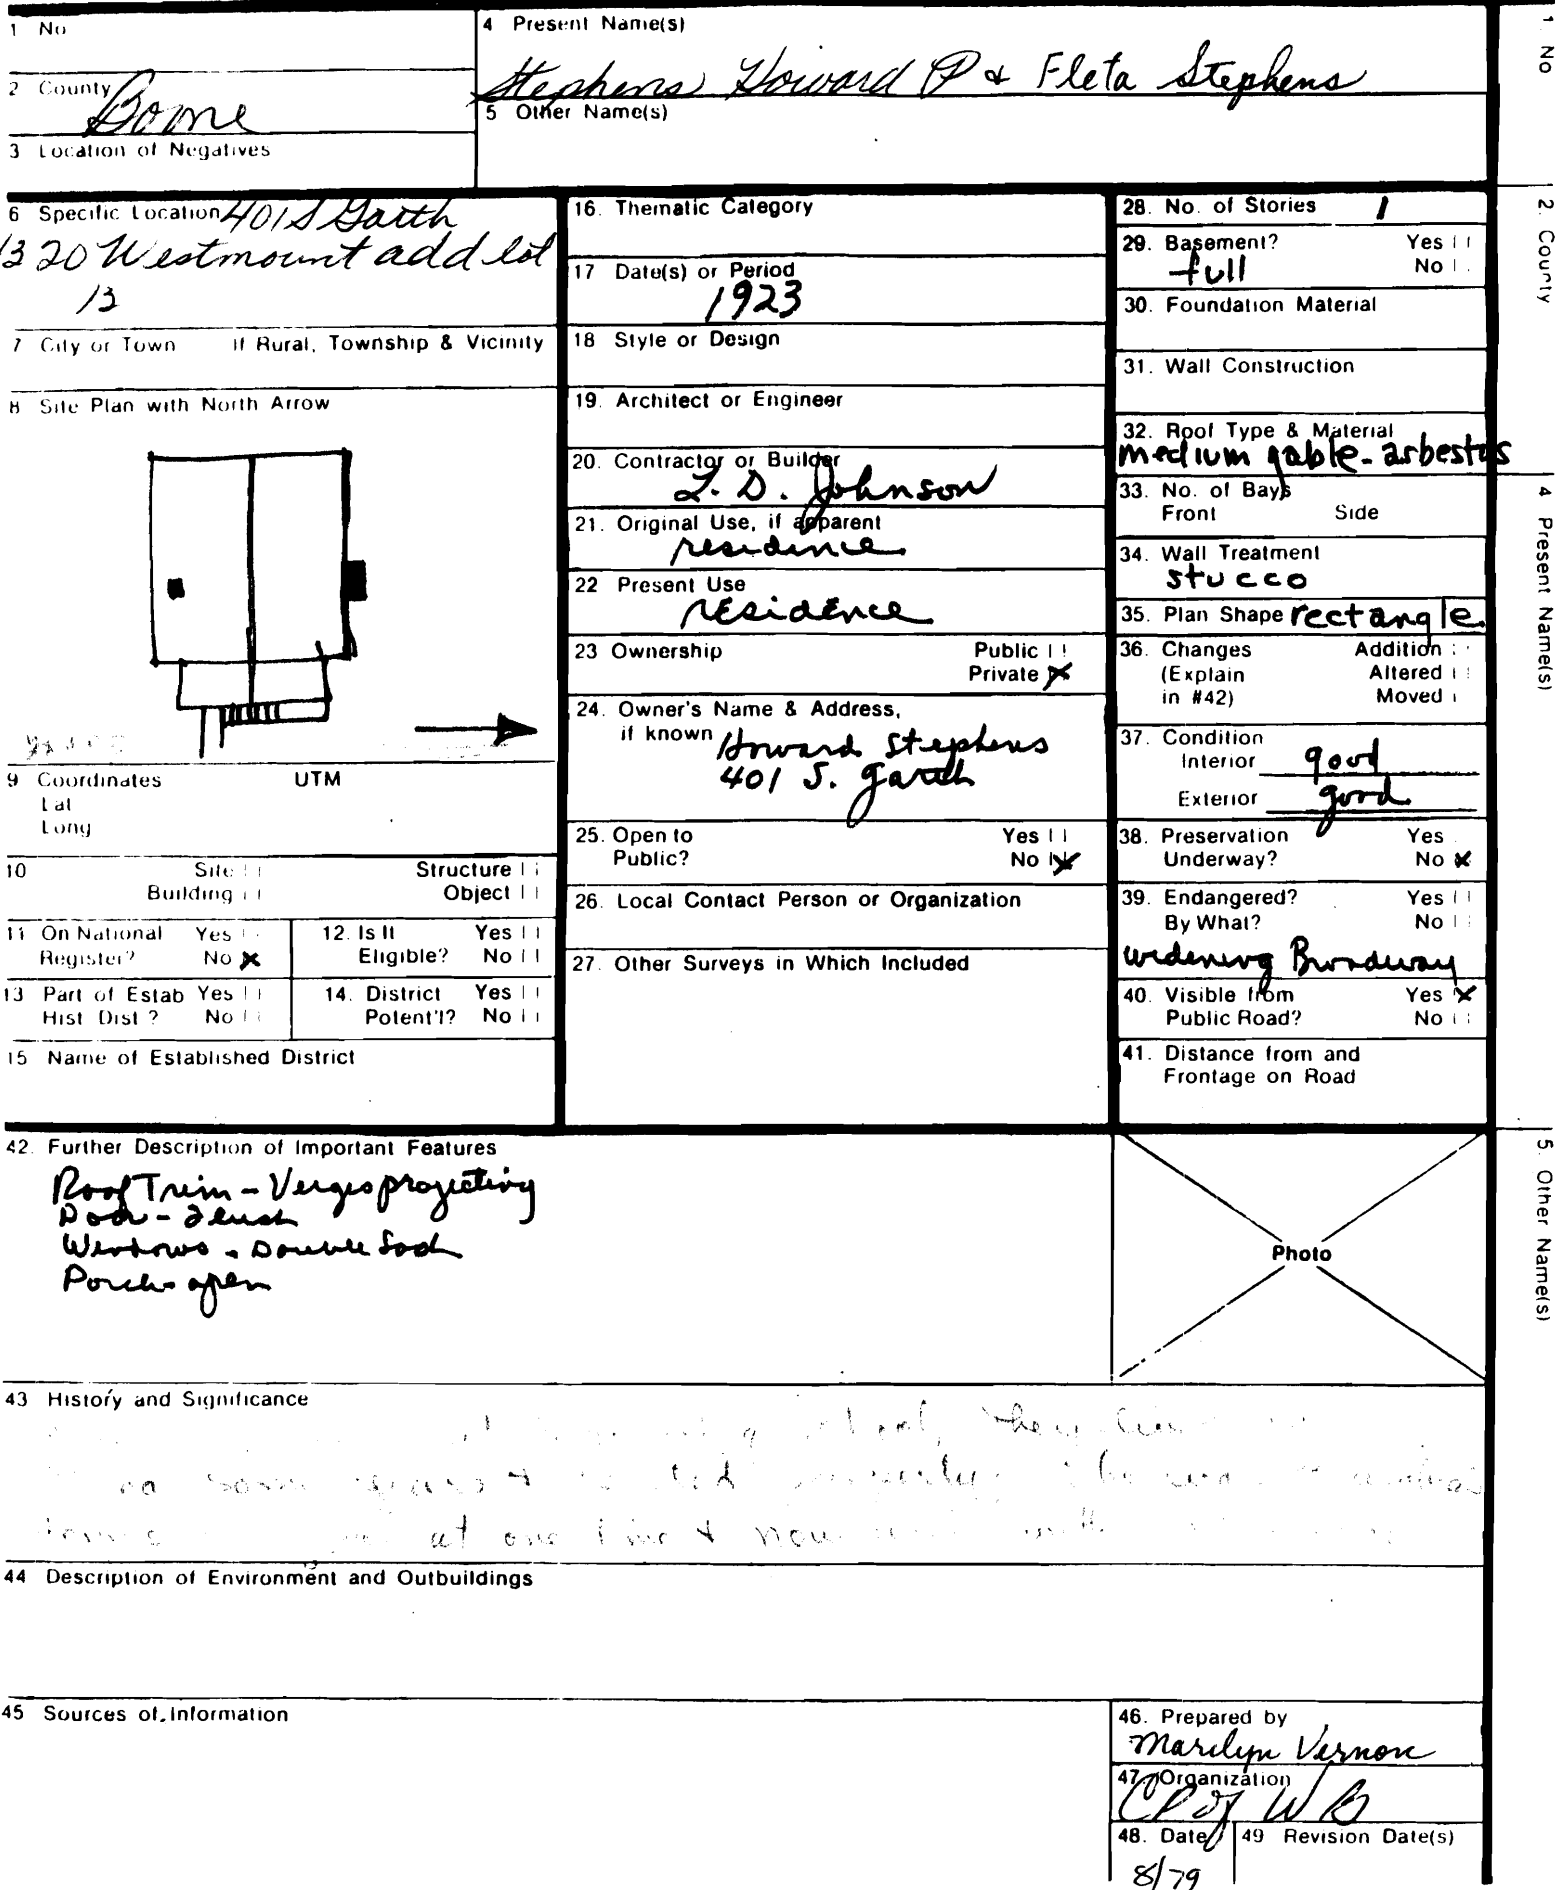 1 No
4 Present Name(s)
Stephens Howard P & Fleta Stephens
2 County
Boone
5 Other Name(s)
3 Location of Negatives
6 Specific Location 401 S Garth
1320 Westmount add lot
13
7 City or Town If Rural, Township & Vicinity
8 Site Plan with North Arrow
9 Coordinates UTM
Lat
Long
10 Site Structure
Building Object
11 On National Register? Yes No x
12. Is It Eligible? Yes No
13 Part of Estab Hist Dist? Yes No
14. District Potent'l? Yes No
15 Name of Established District
16. Thematic Category
17 Date(s) or Period
1923
18 Style or Design
19. Architect or Engineer
20. Contractor or Builder
L. D. Johnson
21. Original Use, if apparent
residence
22 Present Use
residence
23 Ownership Public
Private x
24. Owner's Name & Address,
if known Howard Stephens
401 S. Garth
25. Open to Yes
Public? No x
26. Local Contact Person or Organization
27. Other Surveys in Which Included
28. No. of Stories 1
29. Basement? Yes
full No
30. Foundation Material
31. Wall Construction
32. Roof Type & Material
medium gable - asbestos
33. No. of Bays
Front Side
34. Wall Treatment
stucco
35. Plan Shape rectangle
36. Changes Addition
(Explain Altered
in #42) Moved
37. Condition
Interior good
Exterior good
38. Preservation Yes
Underway? No x
39. Endangered? Yes
By What? No
widening Broadway
40. Visible from Yes x
Public Road? No
41. Distance from and
Frontage on Road
42. Further Description of Important Features
Roof Trim - Verges projecting
Door - Flush
Windows - Double Sash
Porch - open
Photo
43 History and Significance
they
some years &
at one time & now
44 Description of Environment and Outbuildings
45 Sources of Information
46. Prepared by
Marilyn Vernon
47. Organization
48. Date 49 Revision Date(s)
8/79
1. No
2. County
4 Present Name(s)
5. Other Name(s)